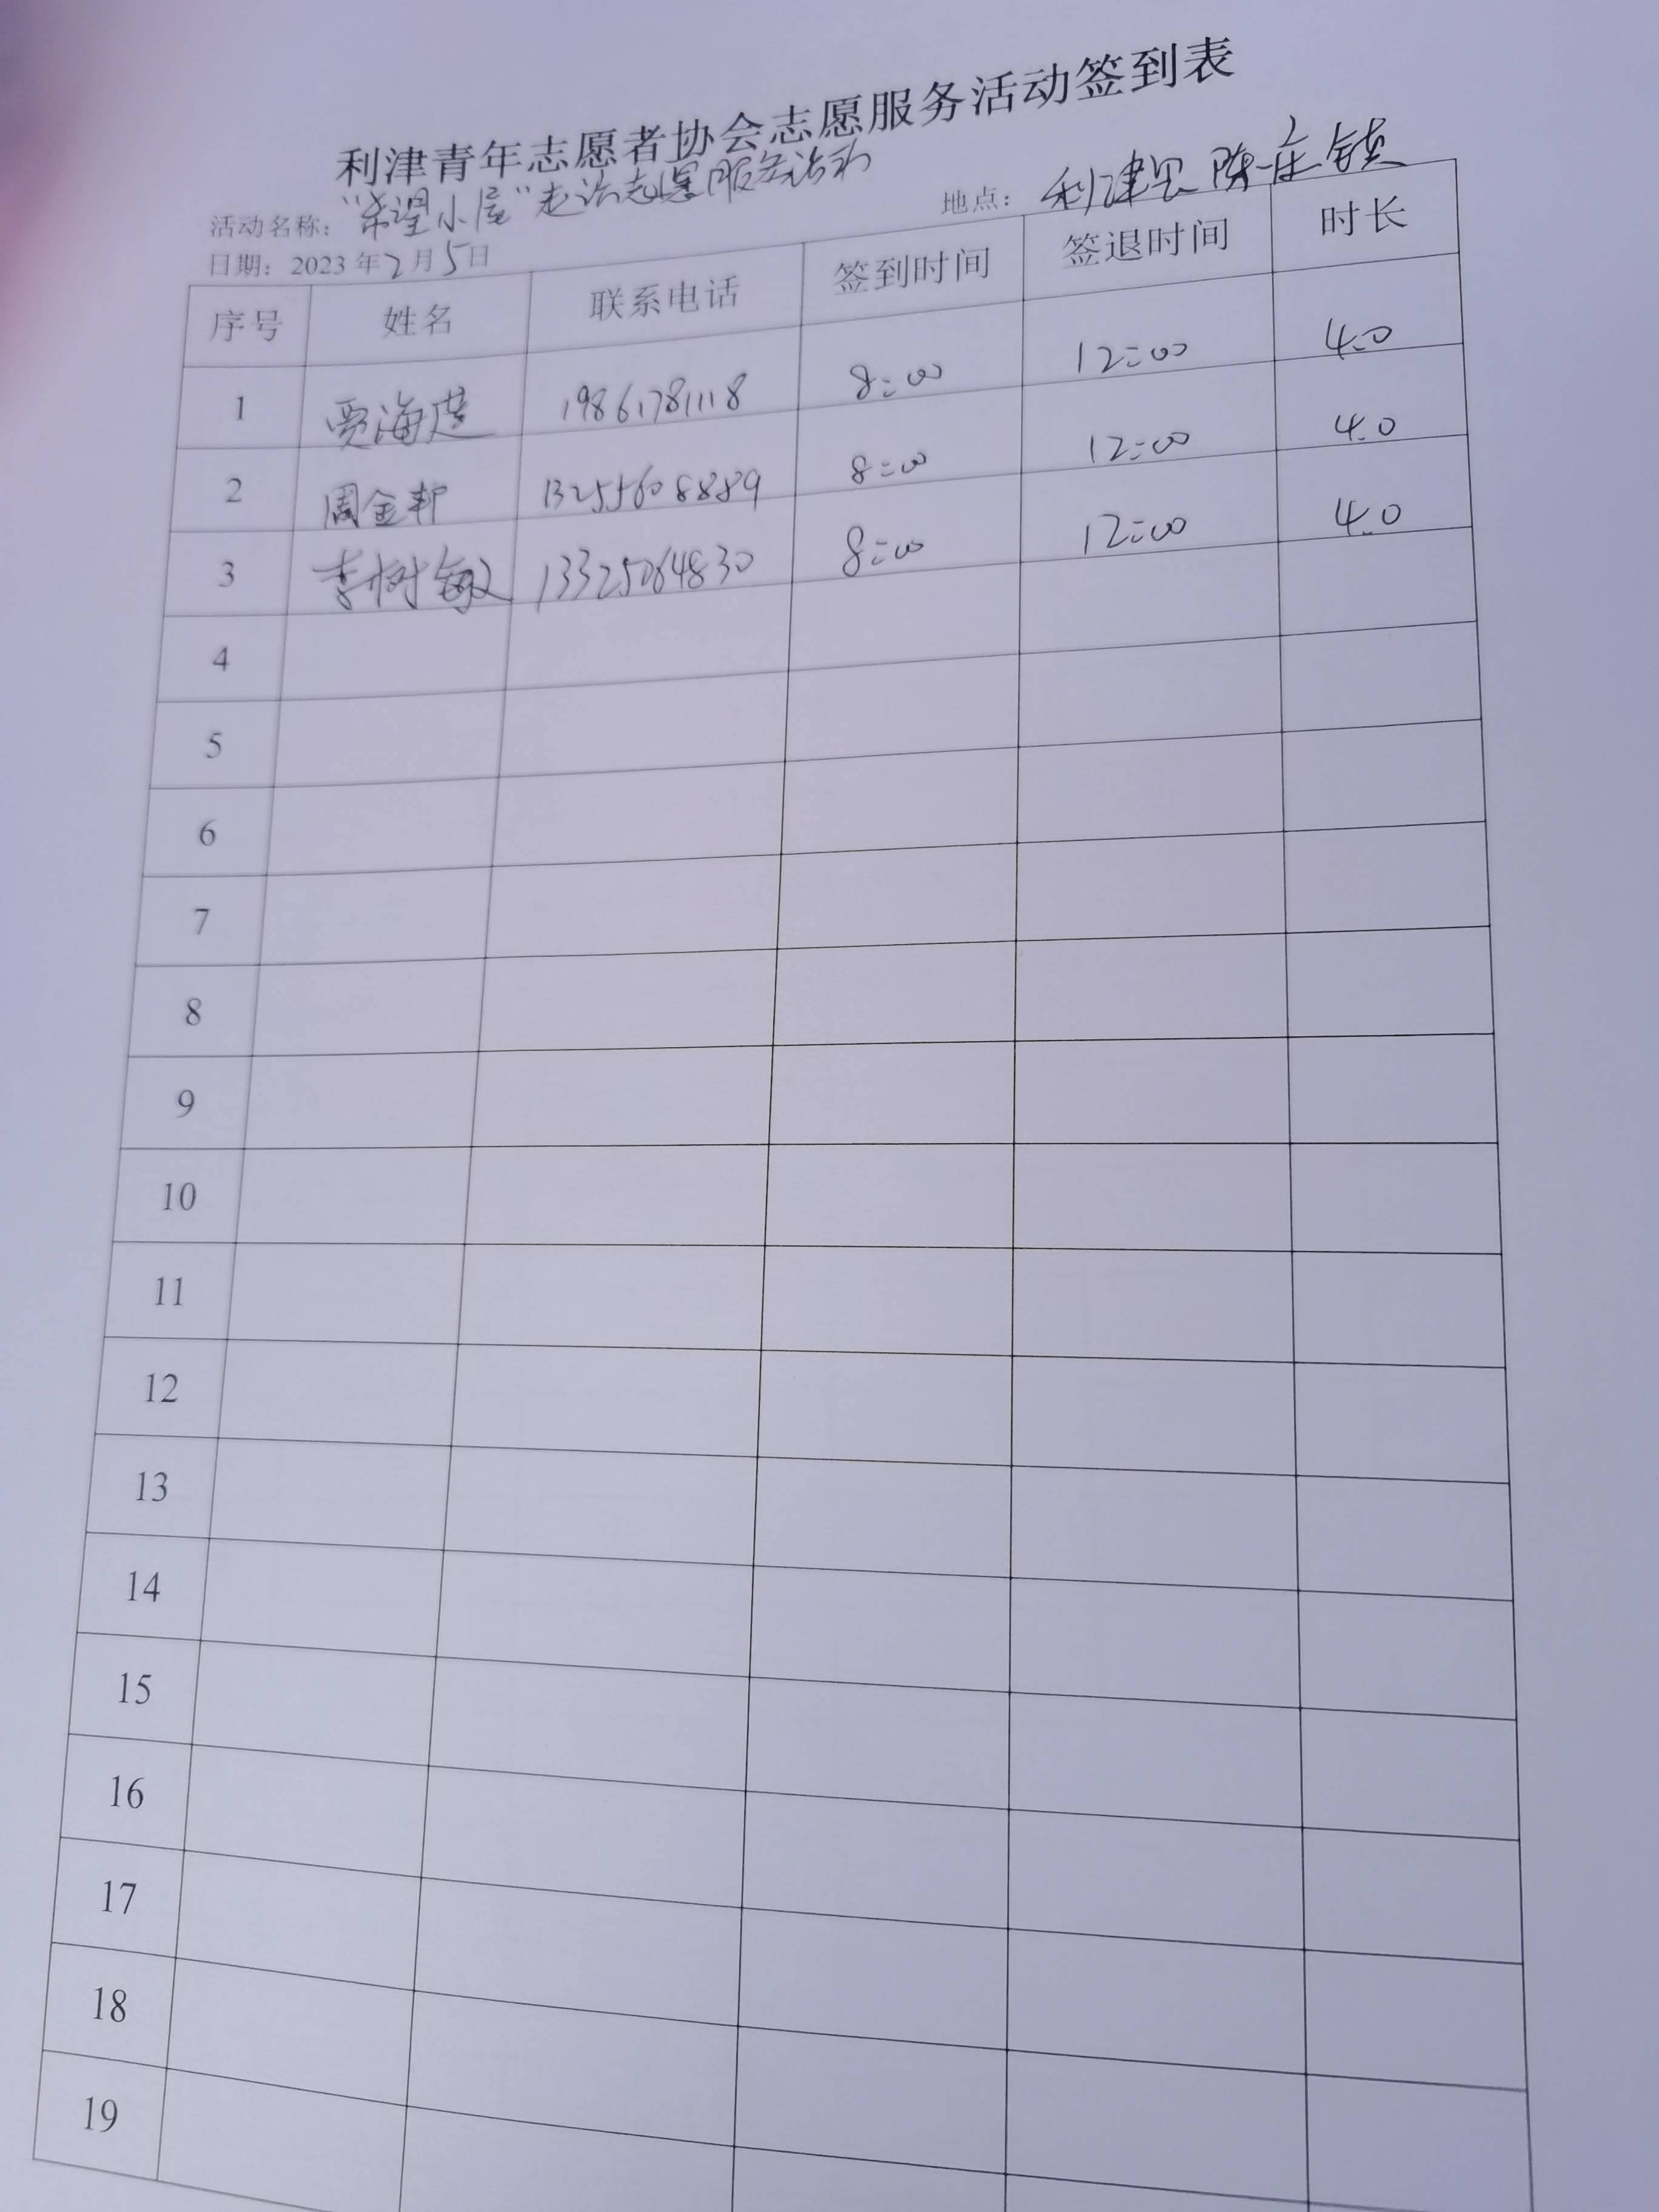 利津青年志愿者协会志愿服务活动签到表
活动名称：“希望小屋”走访志愿服务活动 地点：利津县陈庄镇
日期：2023年2月5日
序号 姓名 联系电话 签到时间 签退时间 时长
1 贾海 19861781118 8:00 12:00 4.0
2 周金邦 13255608889 8:00 12:00 4.0
3 李树敏 13325064830 8:00 12:00 4.0
4
5
6
7
8
9
10
11
12
13
14
15
16
17
18
19